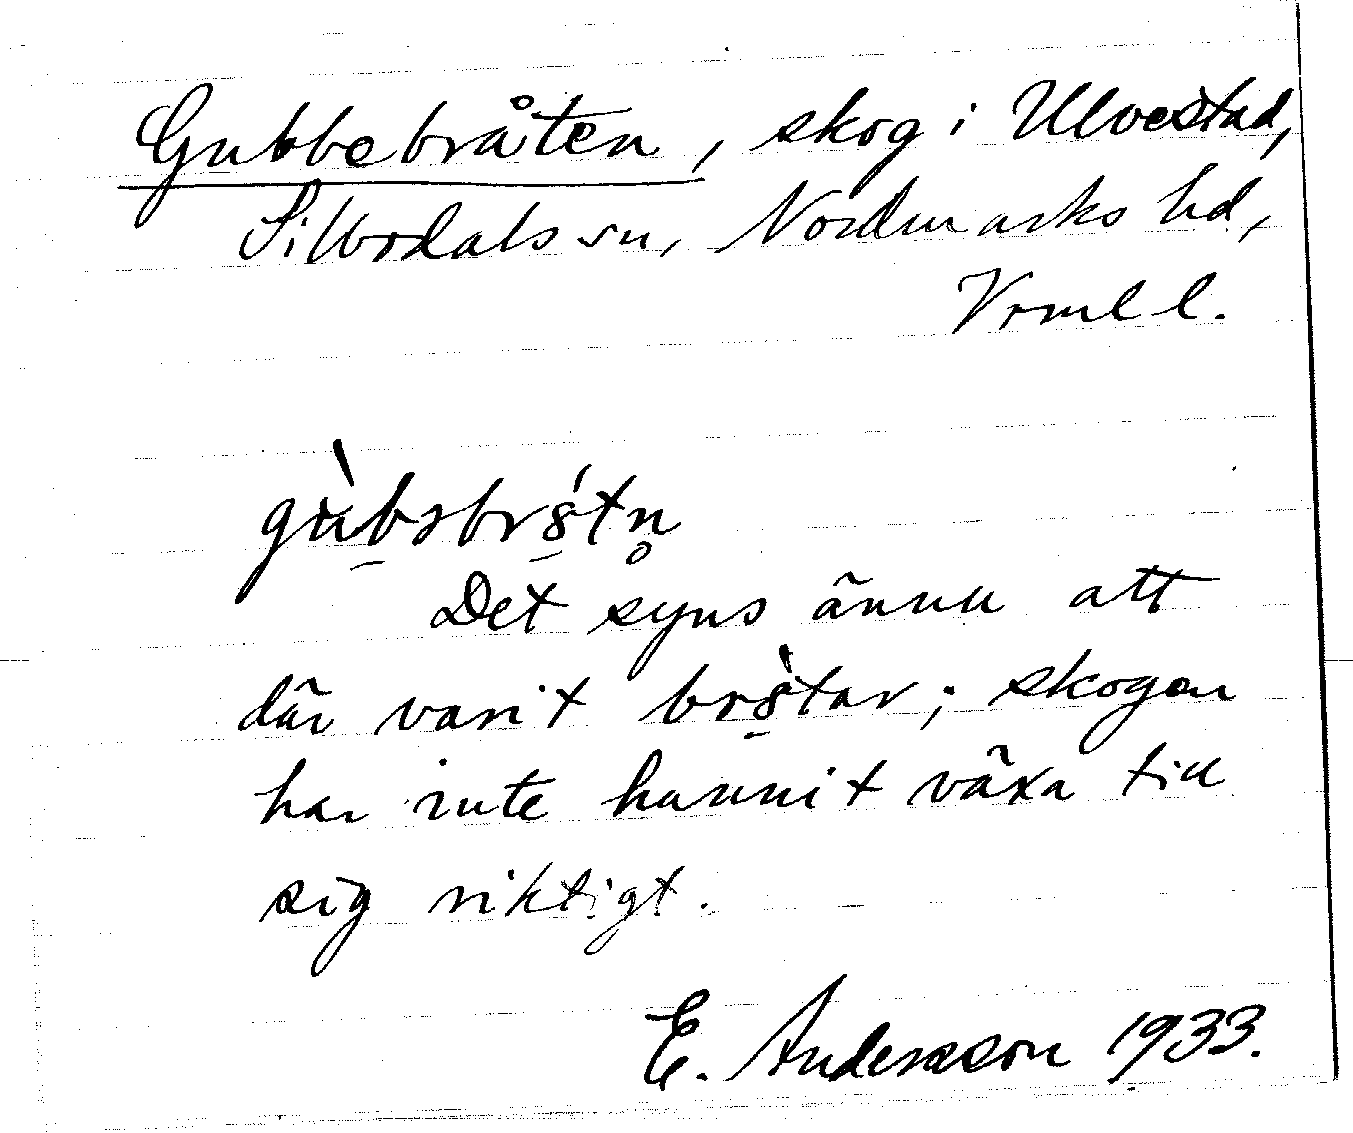 Gubbebråten, skog i Ulvestad,
Silbodals sn, Nordmarks hd,
Vrml l.

Det syns ännu att
där varit ; skogen
har inte hunnit växa till
sig riktigt.
E. Andersson 1933.